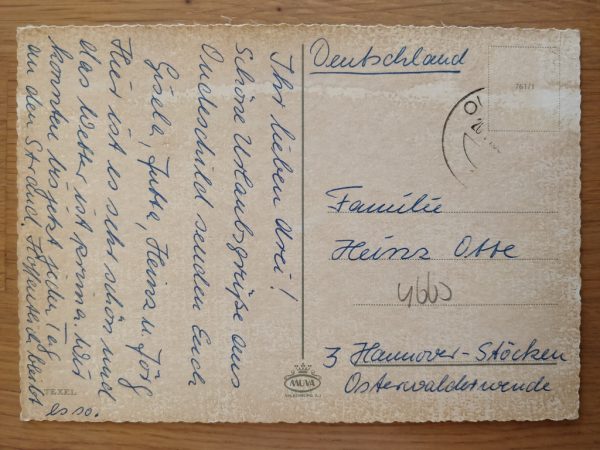 Ihr lieben drei!
Schöne Urlaubsgrüße aus
Oudeschild senden Euch
Gisela, Jutta, Heinz u. Jörg
Hier ist es sehr schön und
das Wetter ist prima. Wir
konnten bis jetzt jeden Tag
an den Strand. Hoffentlich bleibt
es so.
TEXEL
Deutschland
7617/1
Familie
Heinz Otte
4660
3 Hannover-Stöcken
Osterwalderwende
MUVA